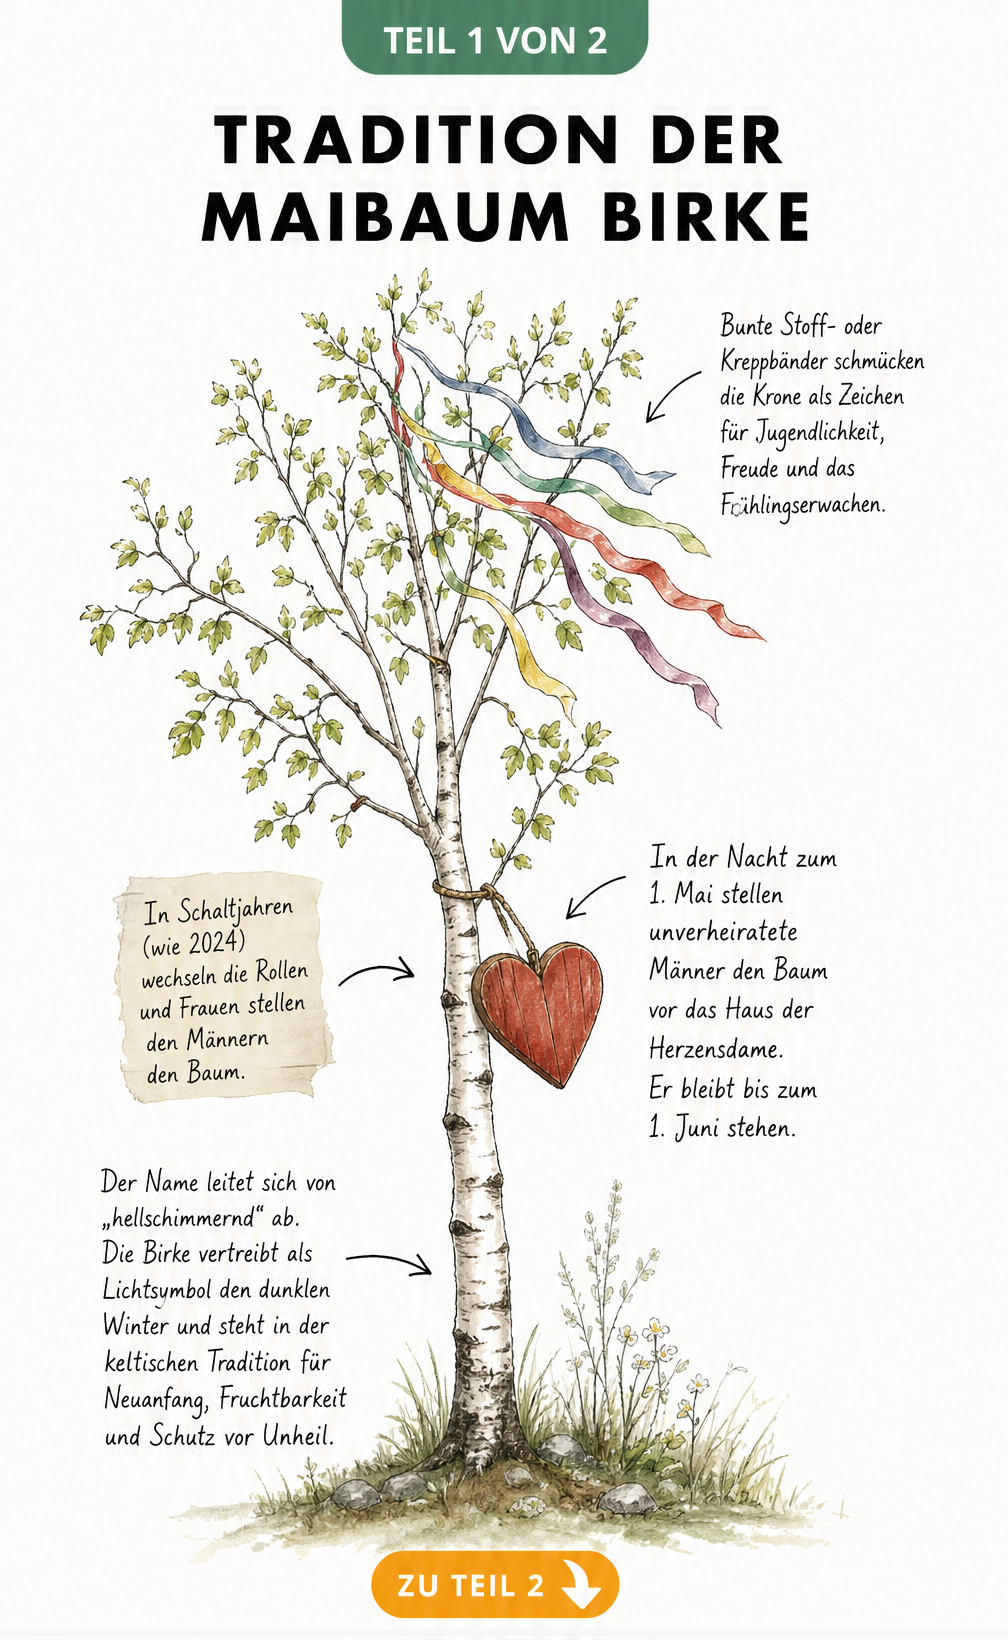 TEIL 1 VON 2
TRADITION DER
MAIBAUM BIRKE
Bunte Stoff- oder
Kreppbänder schmücken
die Krone als Zeichen
für Jugendlichkeit,
Freude und das
Frühlingserwachen.
In der Nacht zum
1. Mai stellen
unverheiratete
Männer den Baum
vor das Haus der
Herzensdame.
Er bleibt bis zum
1. Juni stehen.
In Schaltjahren
(wie 2024)
wechseln die Rollen
und Frauen stellen
den Männern
den Baum.
Der Name leitet sich von
„hellschimmernd“ ab.
Die Birke vertreibt als
Lichtsymbol den dunklen
Winter und steht in der
keltischen Tradition für
Neuanfang, Fruchtbarkeit
und Schutz vor Unheil.
ZU TEIL 2